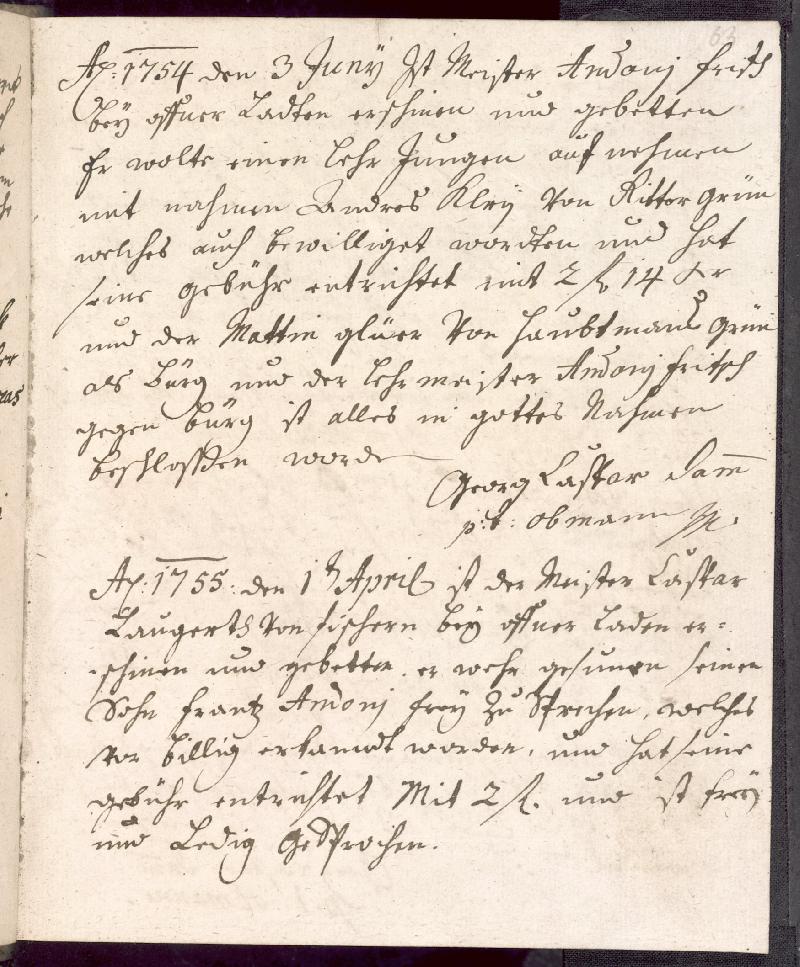 63
Ao: 1754 den 3 Juny Ist Meister Andonj fritsch
beÿ offner Ladten erschinen und gebetten
Er wolte einen Lehr Jungen auf nehmen
mit nahmen Andres Klrÿ Von Rittergrün
welches auch bewilliget wordten und hat
seine gebühr entrichtet mit 2 fl 14 Xr
und der Mattin glüer Von Haubtmans grün
als bürg und der Lehrmeister Andonj fritsch
gegen bürg ist alles in gottes Nahmen
beschlossen worden
Georg Caspar Damm
p:t: obmann
Ao: 1755: den 1t April ist der Meister Caspar
Laugerth Von fischern beÿ offner Laden er=
schinen und gebetten. er wehr gesunen seinen
Sohn frantz Andonj freÿ Zu Sprechen, welches
vor billig erkandt worden, und hat seine
gebühr entrichtet Mit 2 fl. und ist freÿ
und Ledig gesprochen.